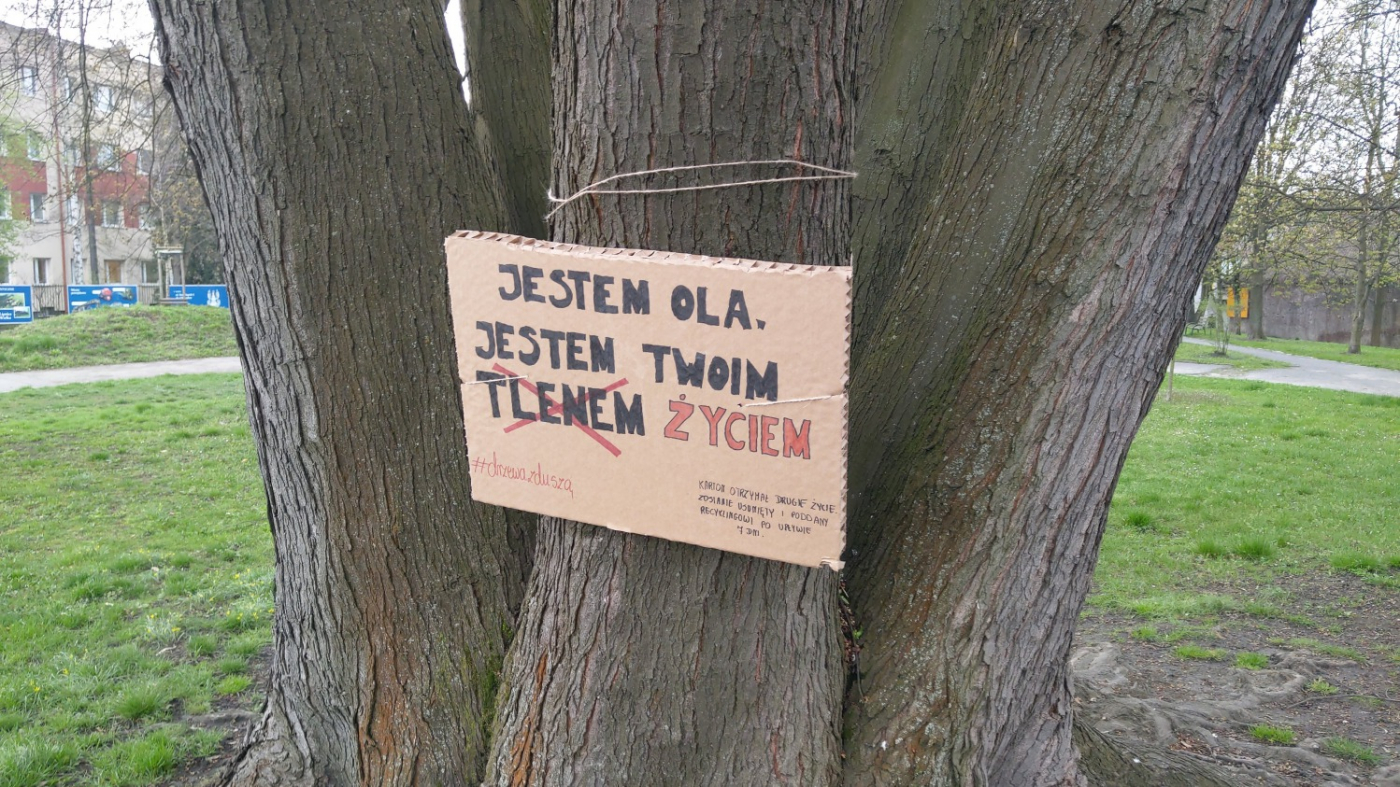 JESTEM OLA.
JESTEM TWOIM
TLENEM ŻYCIEM
#drzewazduszą
KARTON OTRZYMAŁ DRUGIE ŻYCIE.
ZOSTANIE USUNIĘTY I PODDANY
RECYCLINGOWI PO UPŁYWIE
7 DNI.